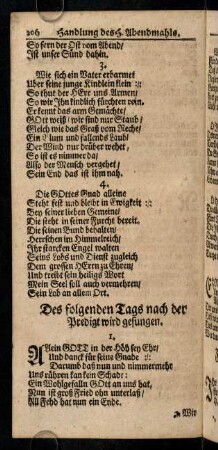 206 Handlung des H. Abendmahls.
So fern der Ost vom Abend/
Ist unser Sünd dahin.
3.
Wie sich ein Vater erbarmet
Uber seine junge Kindlein klein :/:
So thut der HErr uns Armen/
So wir Ihn kindlich fürchten rein.
Er kennt das arm Gemächte/
GOtt weiß/ wir sind nur Staub/
Gleich wie das Graß vom Reche/
Ein Blum und fallends Laub/
Der Wind nur drüber wehet/
So ist es nimmer da/
Also der Mensch vergehet/
Sein End das ist ihm nah.
4.
Die GOttes Gnad alleine
Steht fest und bleibt in Ewigkeit :/:
Bey seiner lieben Gemeine/
Die steht in seiner Furcht bereit.
Die seinen Bund behalten/
Herrschen im Himmelreich/
Ihr starcken Engel walten
Seins Lobs und Dienst zugleich
Dem grossen HErrn zu Ehren/
Und treibt sein heiligs Wort
Mein Seel soll auch vermehren/
Sein Lob an allem Ort.
Des folgenden Tags nach der
Predigt wird gesungen.
1.
Allein GOTT in der Höh sey Ehr/
Und danck für seine Gnade :/:
Darumb daß nun und nimmermehr
Uns rühren kan kein Schade:
Ein Wohlgefalln GOtt an uns hat,
Nun ist groß Fried ohn unterlaß/
All Fehd hat nun ein Ende.
Wir